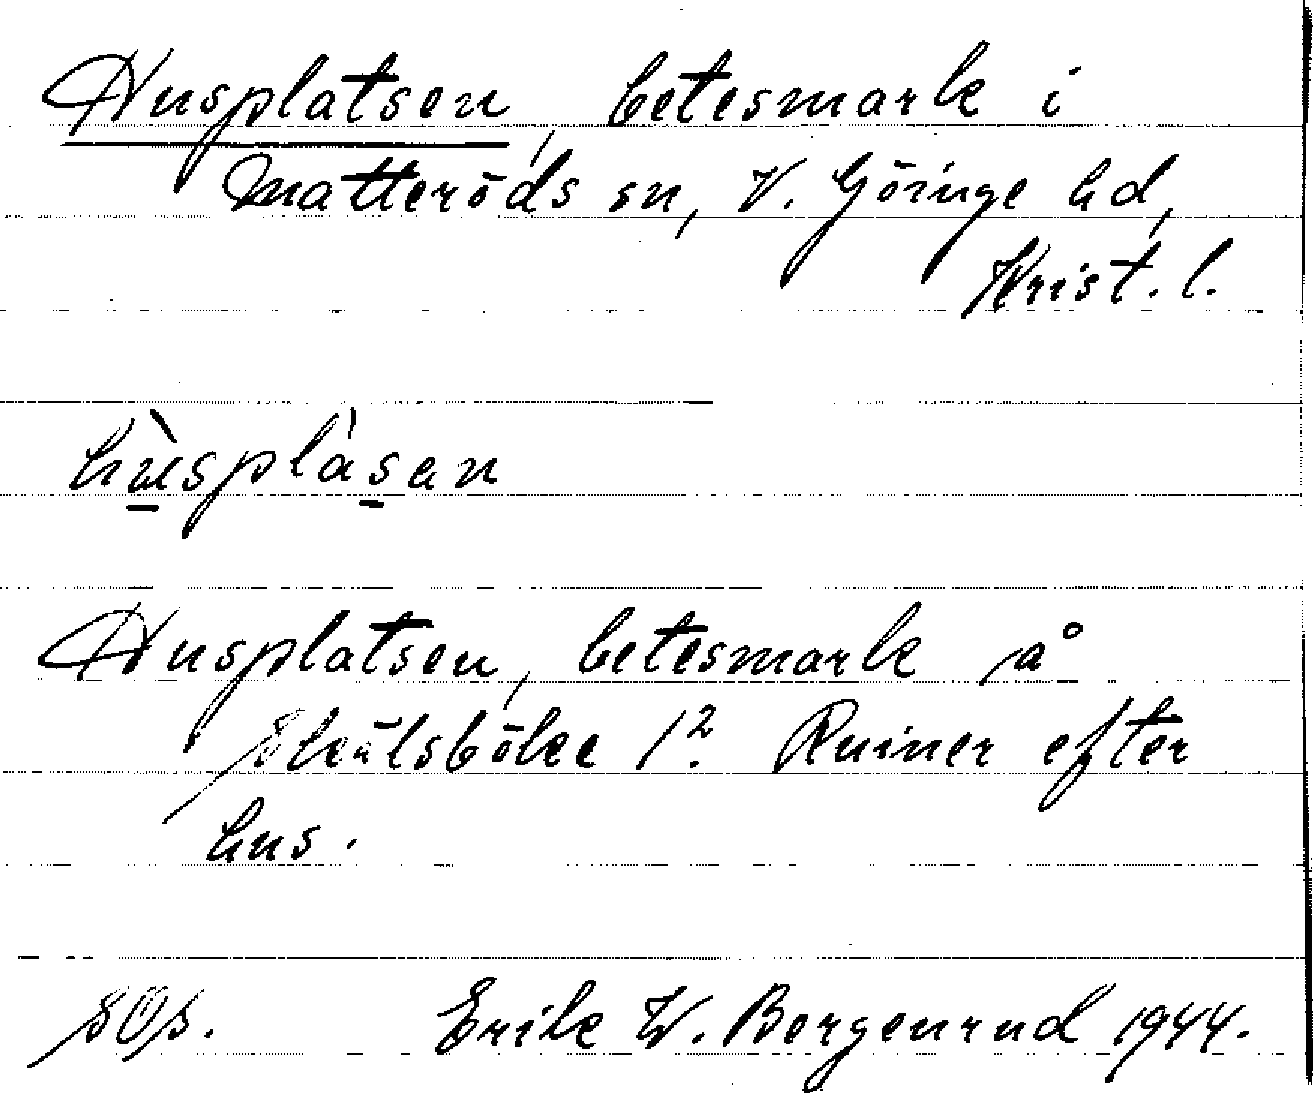 Husplatsen, betesmark i
Matteröds sn, V. Göinge hd,
Krist. l.
hùsplàsen
Husplatsen, betesmark på
Skälsböke 1². Ruiner efter
hus.
SOs. Erik W. Bergenrud 1944.